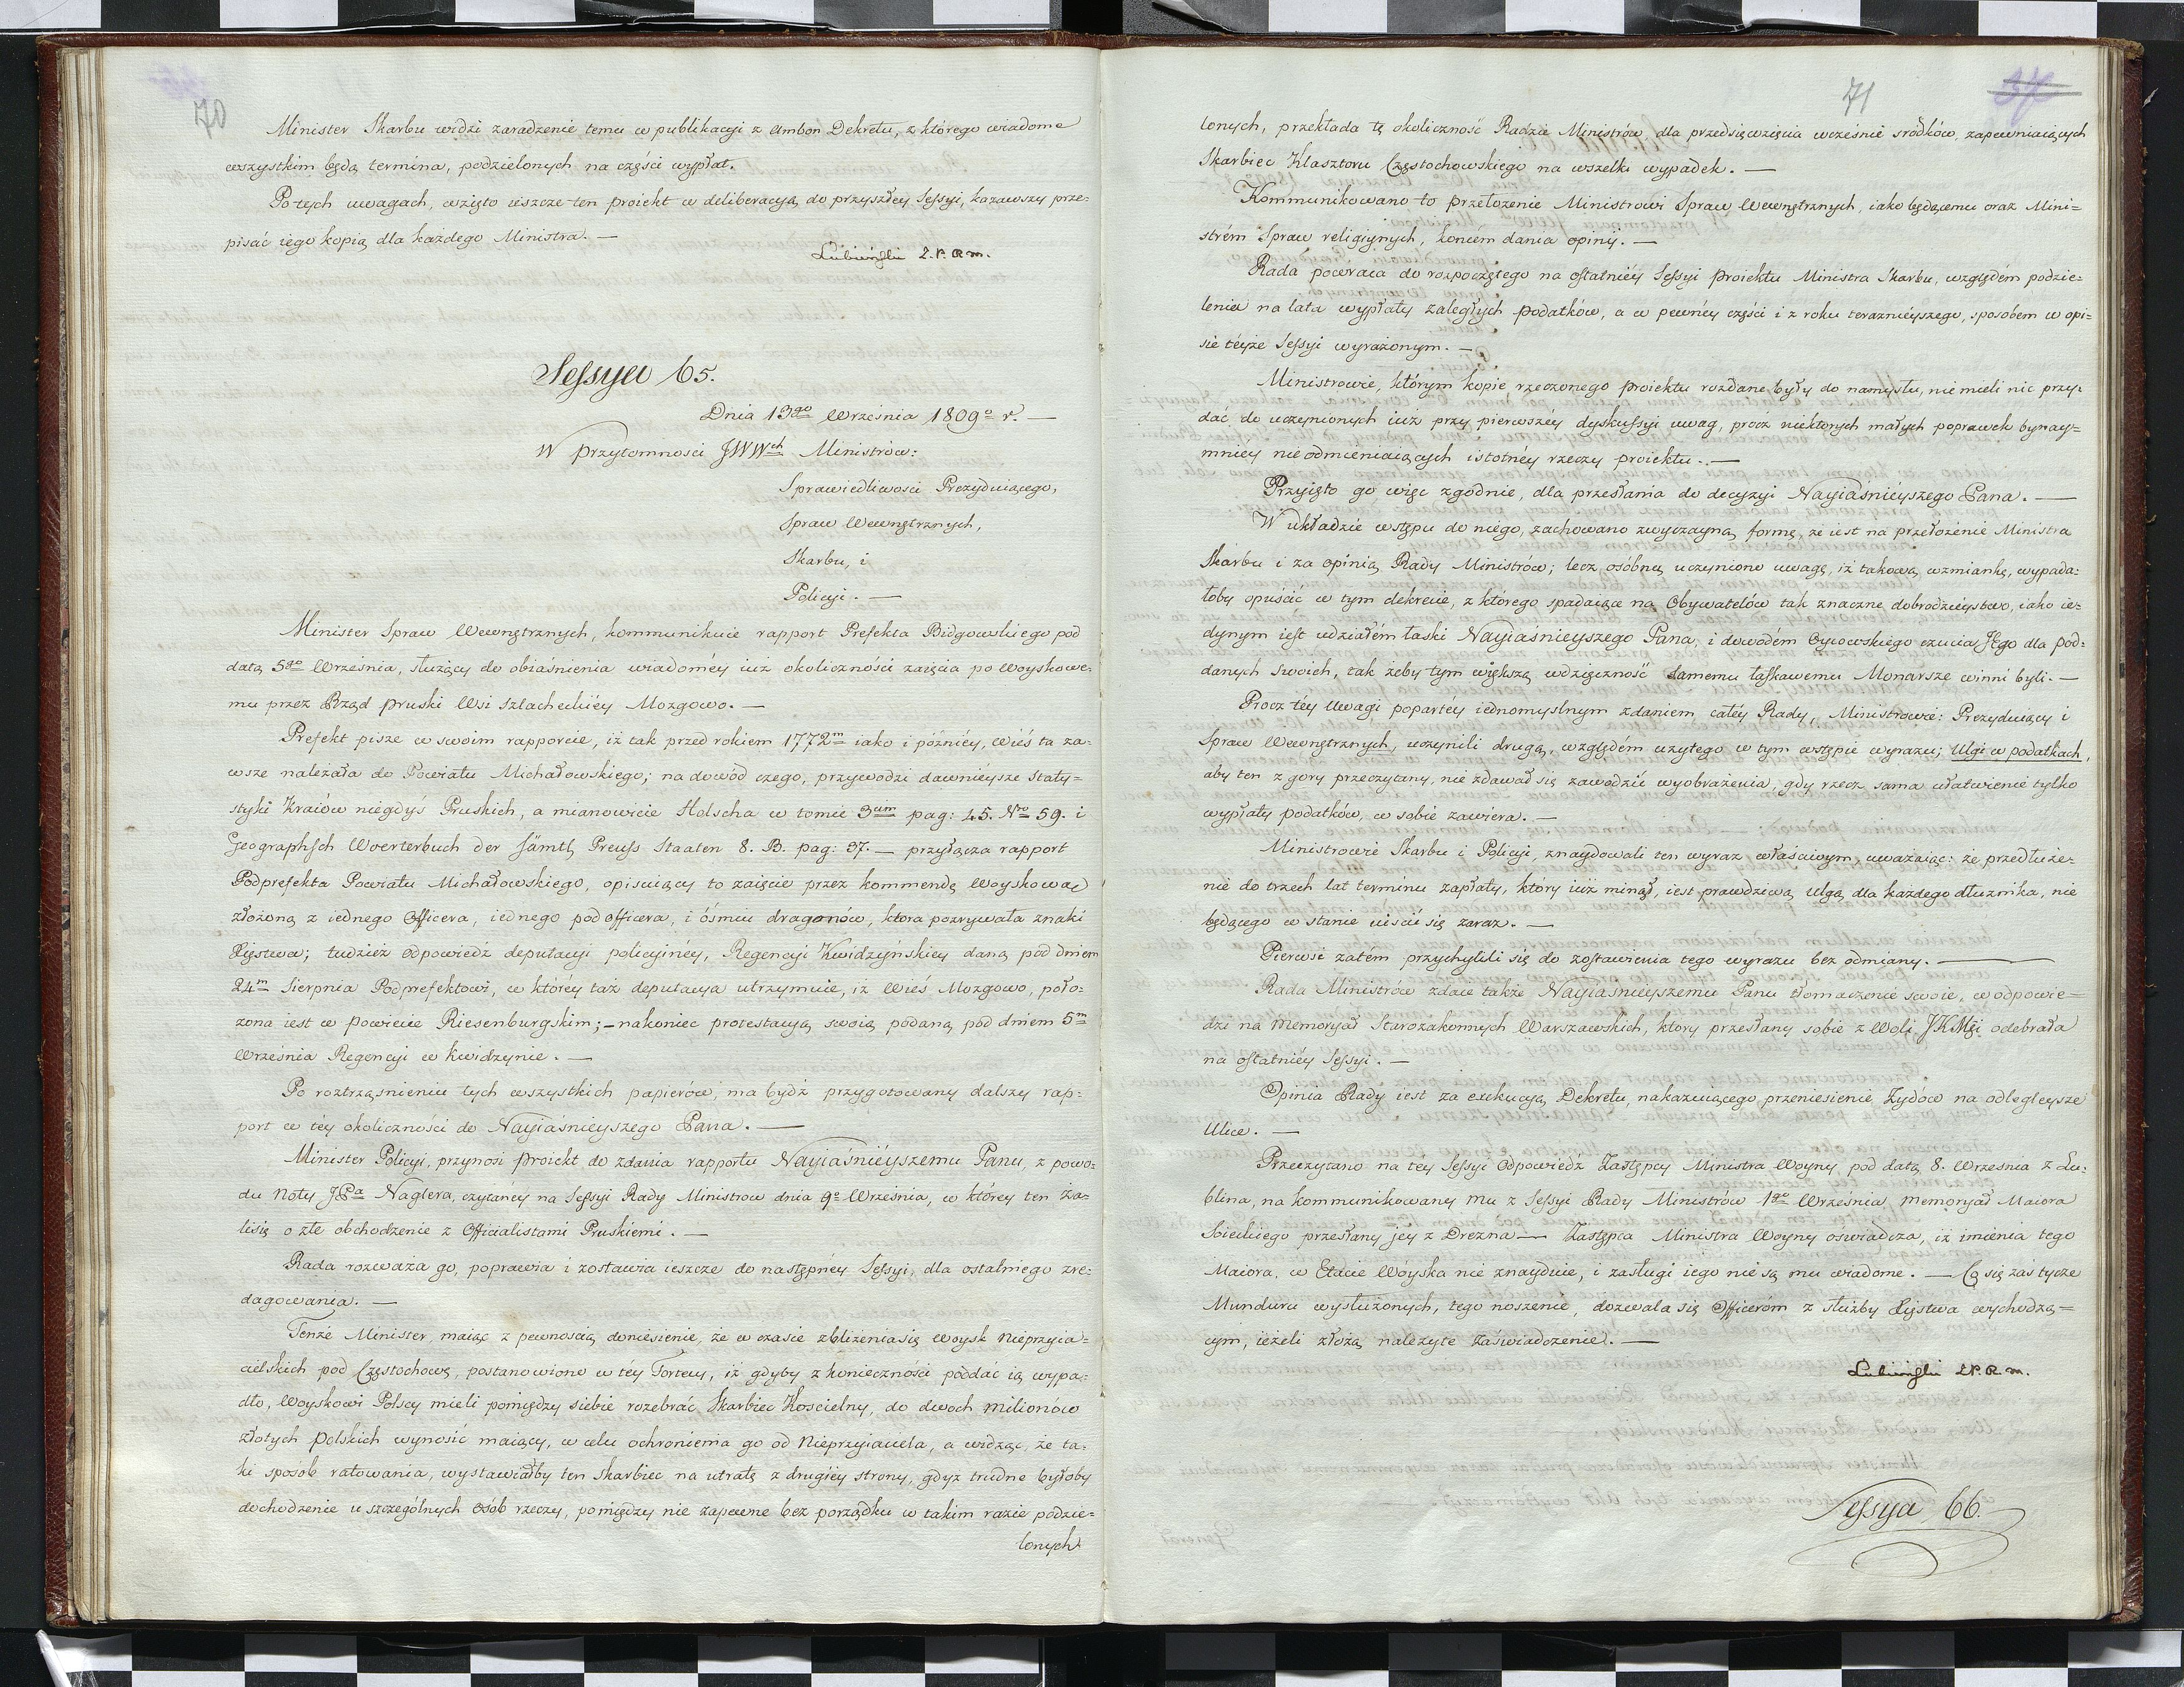 70
Minister Skarbu widzi zaradzenie temu w publikacyi z Ambon Dekretu, z którego wiadome
wszystkim będą termina, podzielonych na części wypłat.
Po tych uwagach, wzięto ieszcze ten proiekt w deliberacyą do przyszłey Sessyi, kazawszy prze=
pisać iego kopią dla każdego Ministra. —
Lubieński
Sessya 65.
Dnia 13go Września 1809o r. —
W przytomności JWWch Ministrów:
Sprawiedliwości Prezyduiącego,
Spraw Wewnętrznych,
Skarbu, i
Policyi. —
Minister Spraw Wewnętrznych, kommunikuie rapport Prefekta Bidgowskiego pod
datą 5go Września, służący do obiaśnienia wiadoméy iuż okoliczności zaięcia po woyskowe=
mu przez Rząd pruski Wsi szlacheckiéy Mozgowo. —
Prefekt pisze w swoim rapporcie, iż tak przed rokiem 1772m iako i późniéy, wieś ta za=
wsze należała do Powiatu Michałowskiego; na dowód czego, przywodzi dawnieysze staty=
styki Kraiów niegdyś Pruskich, a mianowicie Holscha w tomie 3um pag: 45. Nro 59. i
Geographsch Woerterbuch der Sämtl. Preuss Staaten 8. B. pag: 37. — przyłącza rapport
Podprefekta Powiatu Michałowskiego, opisuiący to zaięcie przez kommendę woyskową
złożoną z iednego Officera, iednego podofficera, i óśmiu dragonów, która pozrywała znaki
Xięstwa; tudzież odpowiedź deputacyi policyinéy, Regencyi Kwidzyńskiey daną pod dniem
24m Sierpnia Podprefektowi, w którey taż deputacya utrzymuie, iż wieś Mozgowo, poło=
żona iest w powiecie Riesenburgskim; — nakoniec protestacyą swoią podaną pod dniem 5m
Września Regencyi w Kwidzynie. —
Po roztrząśnieniu tych wszystkich papierów, ma bydź przygotowany dalszy rap=
port w téy okoliczności do Nayiaśnieyszego Pana. —
Minister Policyi, przynosi proiekt do zdania rapportu Nayiaśniéyszemu Panu, z powo=
du noty JPa Naglera, czytanéy na Sessyi Rady Ministrów dnia 9o Września, w którey ten ża=
li się o złe obchodzenie z Officialistami Pruskiemi. —
Rada rozważa go, poprawia i zostawia ieszcze do następnéy Sessyi, dla ostatniego zre=
dagowania. —
Tenże Minister, maiąc z pewnością doniesienie, że w czasie zbliżenia się woysk nieprzyia=
cielskich pod Częstochowę, postanowiono w téy Fortecy, iż gdyby z konieczności poddać ią wypa=
dło, woyskowi Polscy mieli pomiędzy siebie rozebrać Skarbiec Kościelny, do dwoch milionów
złotych polskich wynosić maiący, w celu ochronienia go od nieprzyiaciela, a widząc, że ta=
ki sposób ratowania, wystawiałby ten skarbiec na utratę z drugiéy strony, gdyż trudne byłoby
dochodzenie u szczególnych osób rzeczy, pomiędzy nie zapewne bez porządku w takim razie podzie=
lonych
71
lonych, przekłada tę okoliczność Radzie Ministrów, dla przedsięwzięcia wcześnie srodków, zapewniaiących
Skarbiec Klasztoru Częstochowskiego na wszelki wypadek. —
Kommunikowano to przełożenie Ministrowi Spraw Wewnętrznych, iako będącemu oraz Mini=
strém Spraw religiynych, końcem dania opinii. —
Rada powraca do rozpoczętego na ostatniéy Sessyi proiektu Ministra Skarbu, względém podzie=
lenia na lata wypłaty zaległych podatków, a w pewnéy części i z roku teraznieyszego, sposobem w opi=
sie téyże Sessyi wyrażonym. —
Ministrowie, którym kopie rzeczonego proiektu rozdane były do namysłu, nie mieli nic przy=
dać do uczynionych iuż przy pierwszéy dyskussyi uwag, prócz niektorych małych poprawek bynay=
mniéy nieodmieniaiących istotnéy rzeczy proiektu. —
Przyięto go więc zgodnie, dla przesłania do decyzyi Nayiaśniéyszego Pana. —
W układzie wstępu do niego, zachowano zwyczayną formę, że iest na przełożenie Ministra
Skarbu i za opinią Rady Ministrów; lecz osóbną uczyniono uwagę, iż takową wzmiankę, wypada=
łoby opuścić w tym dekrecie, z którego spadaiące na Obywatelów tak znaczne dobrodzieystwo, iako ie=
dynym iest udziałém łaski Nayiaśnieyszego Pana, i dowodém Oycowskiego czucia JEgo dla pod=
danych swoich, tak żeby tym większą wdzięczność samemu łaskawemu Monarsze winni byli. —
Procz téy uwagi popartéy iednomyslnym zdaniem całéy Rady, Ministrowie: Prezyduiący i
Spraw Wewnętrznych, uczynili drugą, względém użytego w tym wstępie wyrazu; Ulgi w podatkach,
aby ten z gory przeczytany, nie zdawał się zawodzić wyobrażenia, gdy rzecz sama ułatwienie tylko
wypłaty podatków, w sobie zawiera. —
Ministrowie Skarbu i Policyi, znaydowali ten wyraz właściwym, uważaiąc: że przedłuże=
nie do trzech lat terminu zapłaty, który iuż minął, iest prawdziwą ulgą dla każdego dłużnika, nie
będącego w stanie uiścić się zaraz. —
Pierwsi zatém przychylili się do zostawienia tego wyrazu bez odmiany. —
Rada Ministrów zdaie także Nayiaśnieyszemu Panu tłomaczenie swoie, w odpowie=
dzi na memoryał Starozakonnych Warszawskich, ktory przesłany sobie z woli JKMci odebrała
na ostatniéy Sessyi. —
Opinia Rady iest za exekucyą Dekretu, nakazuiącego przeniesienie Żydów na odlegleysze
Ulice. —
Przeczytano na téy Sessyi odpowiedź Zastępcy Ministra Woyny pod datą 8. Września z Lu=
blina, na kommunikowany mu z Sessyi Rady Ministrów 1go Września, memoryał Maiora
Soieckiego przesłany jéy z Drezna — Zastępca Ministra Woyny oświadcza, iż imienia tego
Maiora, w Etacie Woyska nie znayduie, i zasługi iego nie są mu wiadome. — Co się zaś tycze
Munduru wysłużonych, tego noszenie, dozwala się Officeróm z służby Xięstwa wychodzą=
cym, ieżeli złożą należyte zaświadczenie. —
Lubieński
Sessya 66.